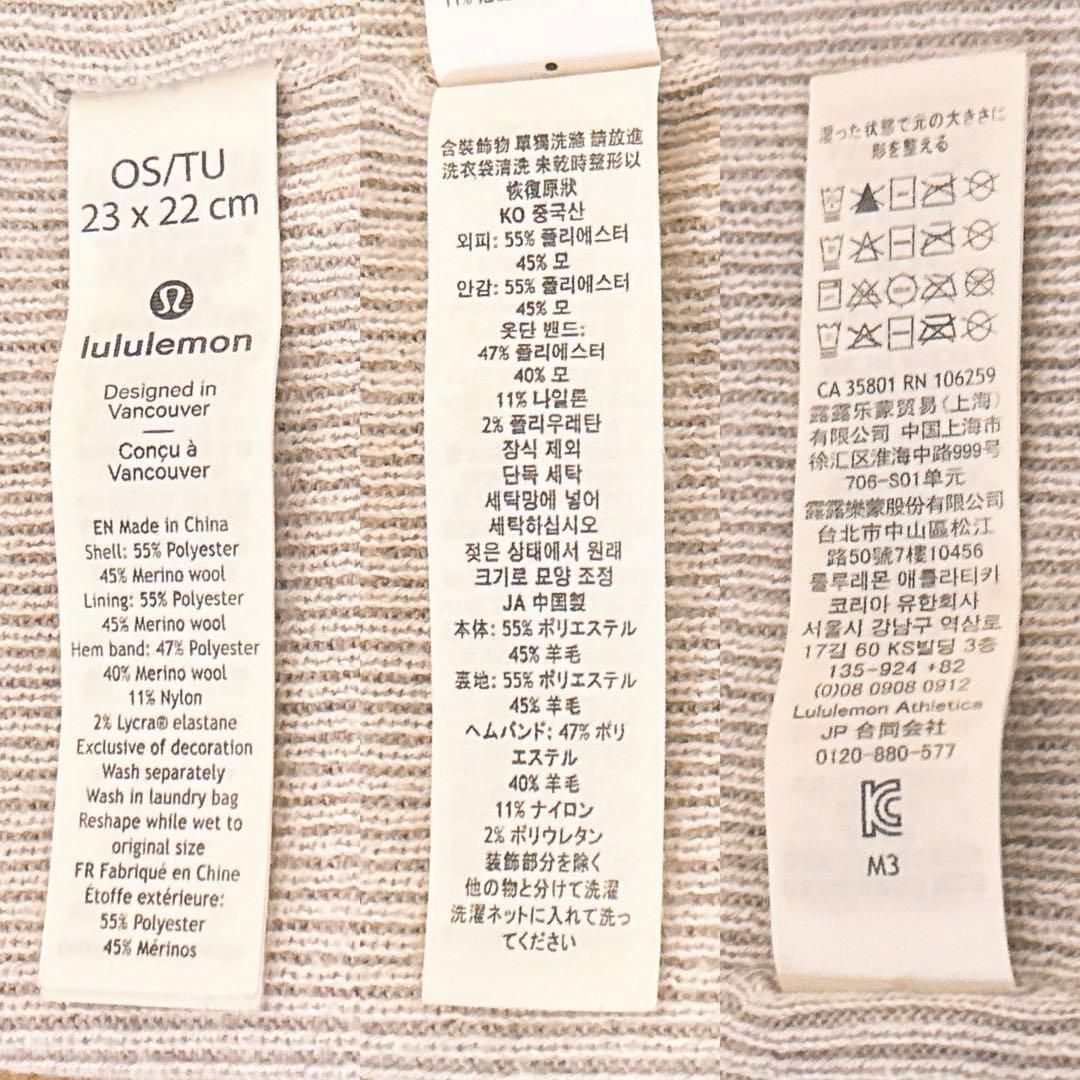 OS/TU
23 x 22 cm
lululemon
Designed in
Vancouver
Conçu à
Vancouver
EN Made in China
Shell: 55% Polyester
45% Merino wool
Lining: 55% Polyester
45% Merino wool
Hem band: 47% Polyester
40% Merino wool
11% Nylon
2% Lycra® elastane
Exclusive of decoration
Wash separately
Wash in laundry bag
Reshape while wet to
original size
FR Fabriqué en Chine
Étoffe extérieure:
55% Polyester
45% Mérinos
11%
含裝飾物 單獨洗滌 請放進
洗衣袋清洗 未乾時整形以
恢復原狀
KO 중국산
외피: 55% 폴리에스터
45% 모
안감: 55% 폴리에스터
45% 모
옷단 밴드:
47% 폴리에스터
40% 모
11% 나일론
2% 폴리우레탄
장식 제외
단독 세탁
세탁망에 넣어
세탁하십시오
젖은 상태에서 원래
크기로 모양 조정
JA 中国製
本体: 55% ポリエステル
45% 羊毛
裏地: 55% ポリエステル
45% 羊毛
ヘムバンド: 47% ポリ
エステル
40% 羊毛
11% ナイロン
2% ポリウレタン
装飾部分を除く
他の物と分けて洗濯
洗濯ネットに入れて洗っ
てください
湿った状態で元の大きさに
形を整える
CA 35801 RN 106259
露露乐蒙贸易(上海)
有限公司 中国上海市
徐汇区淮海中路999号
706-S01单元
露露樂蒙股份有限公司
台北市中山區松江
路50號7樓10456
룰루레몬 애틀라티카
코리아 유한회사
서울시 강남구 역삼로
17길 60 KS빌딩 3층
135-924 +82
(0)08 0908 0912
Lululemon Athletica
JP 合同会社
0120-880-577
M3